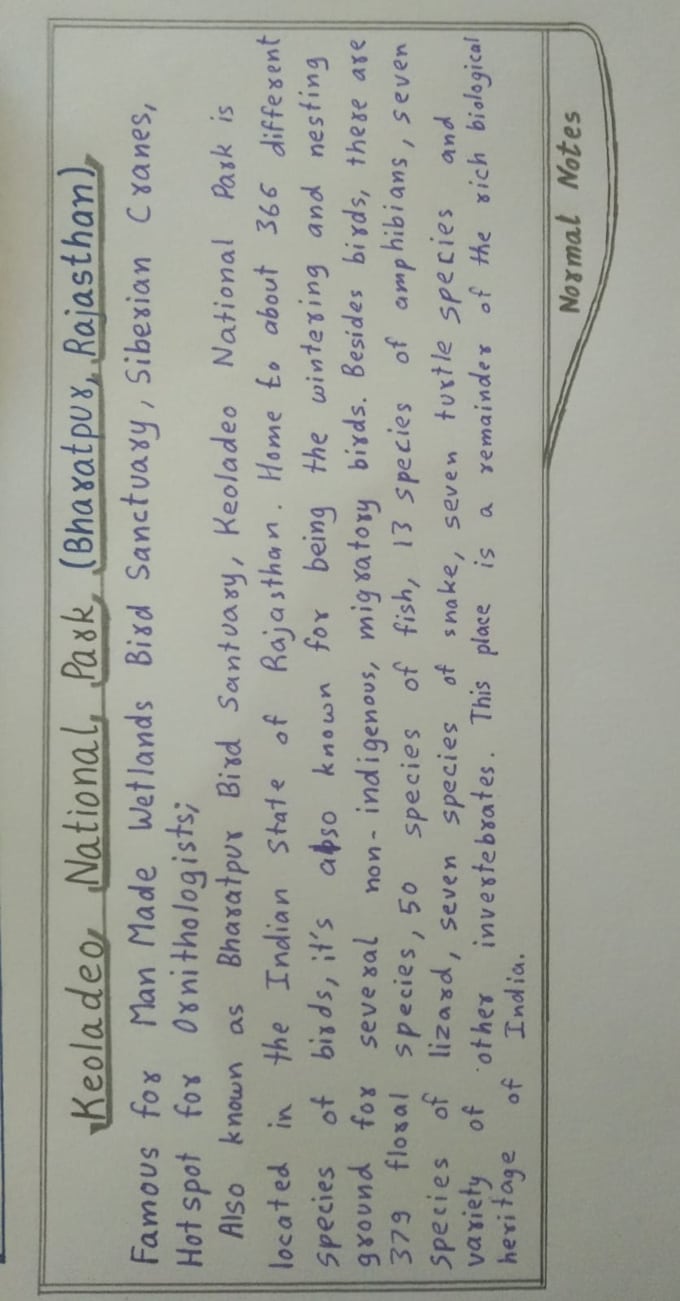 Keoladeo National Park (Bharatpur, Rajasthan)
Famous for Man Made Wetlands Bird Sanctuary, Siberian Cranes,
Hotspot for Ornithologists;
Also known as Bharatpur Bird Santuary, Keoladeo National Park is
located in the Indian State of Rajasthan. Home to about 366 different
species of birds, it's also known for being the wintering and nesting
ground for several non-indigenous, migratory birds. Besides birds, there are
379 floral species, 50 species of fish, 13 species of amphibians, seven
species of lizard, seven species of snake, seven turtle species and
variety of other invertebrates. This place is a remainder of the rich biological
heritage of India.
Normal Notes